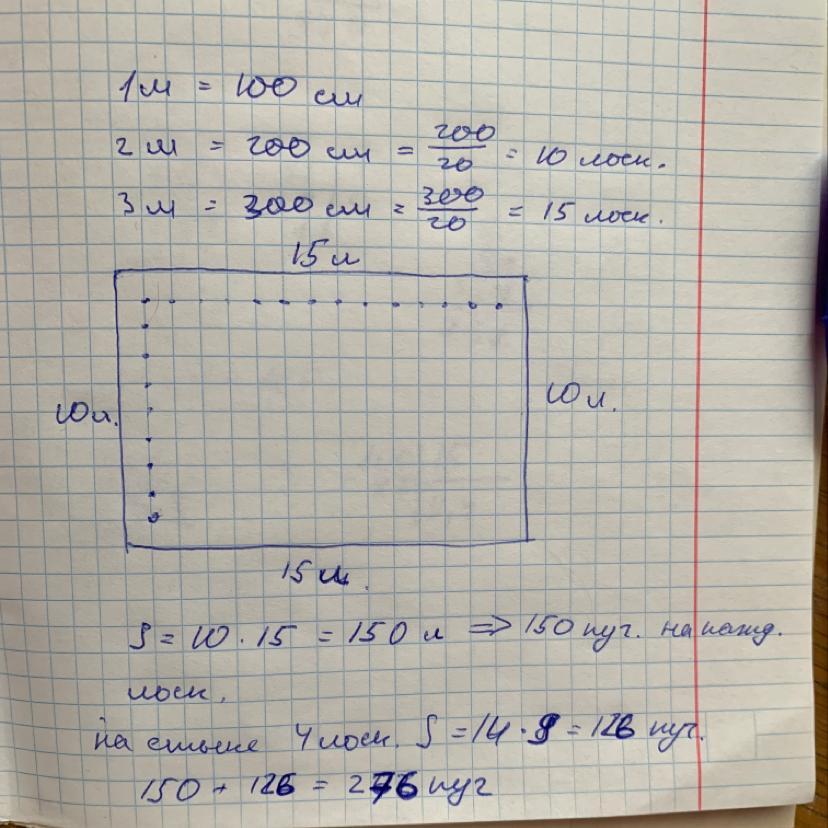 1 м = 100 см
2 м = 200 см = 200/20 = 10 лоск.
3 м = 300 см = 300/20 = 15 лоск.
15 л
10 л.
10 л.
15 л.
S = 10 · 15 = 150 л => 150 пуг. на кажд.
лоск.
на стыке 4 лоск. S = 14 · 9 = 126 пуг.
150 + 126 = 276 пуг